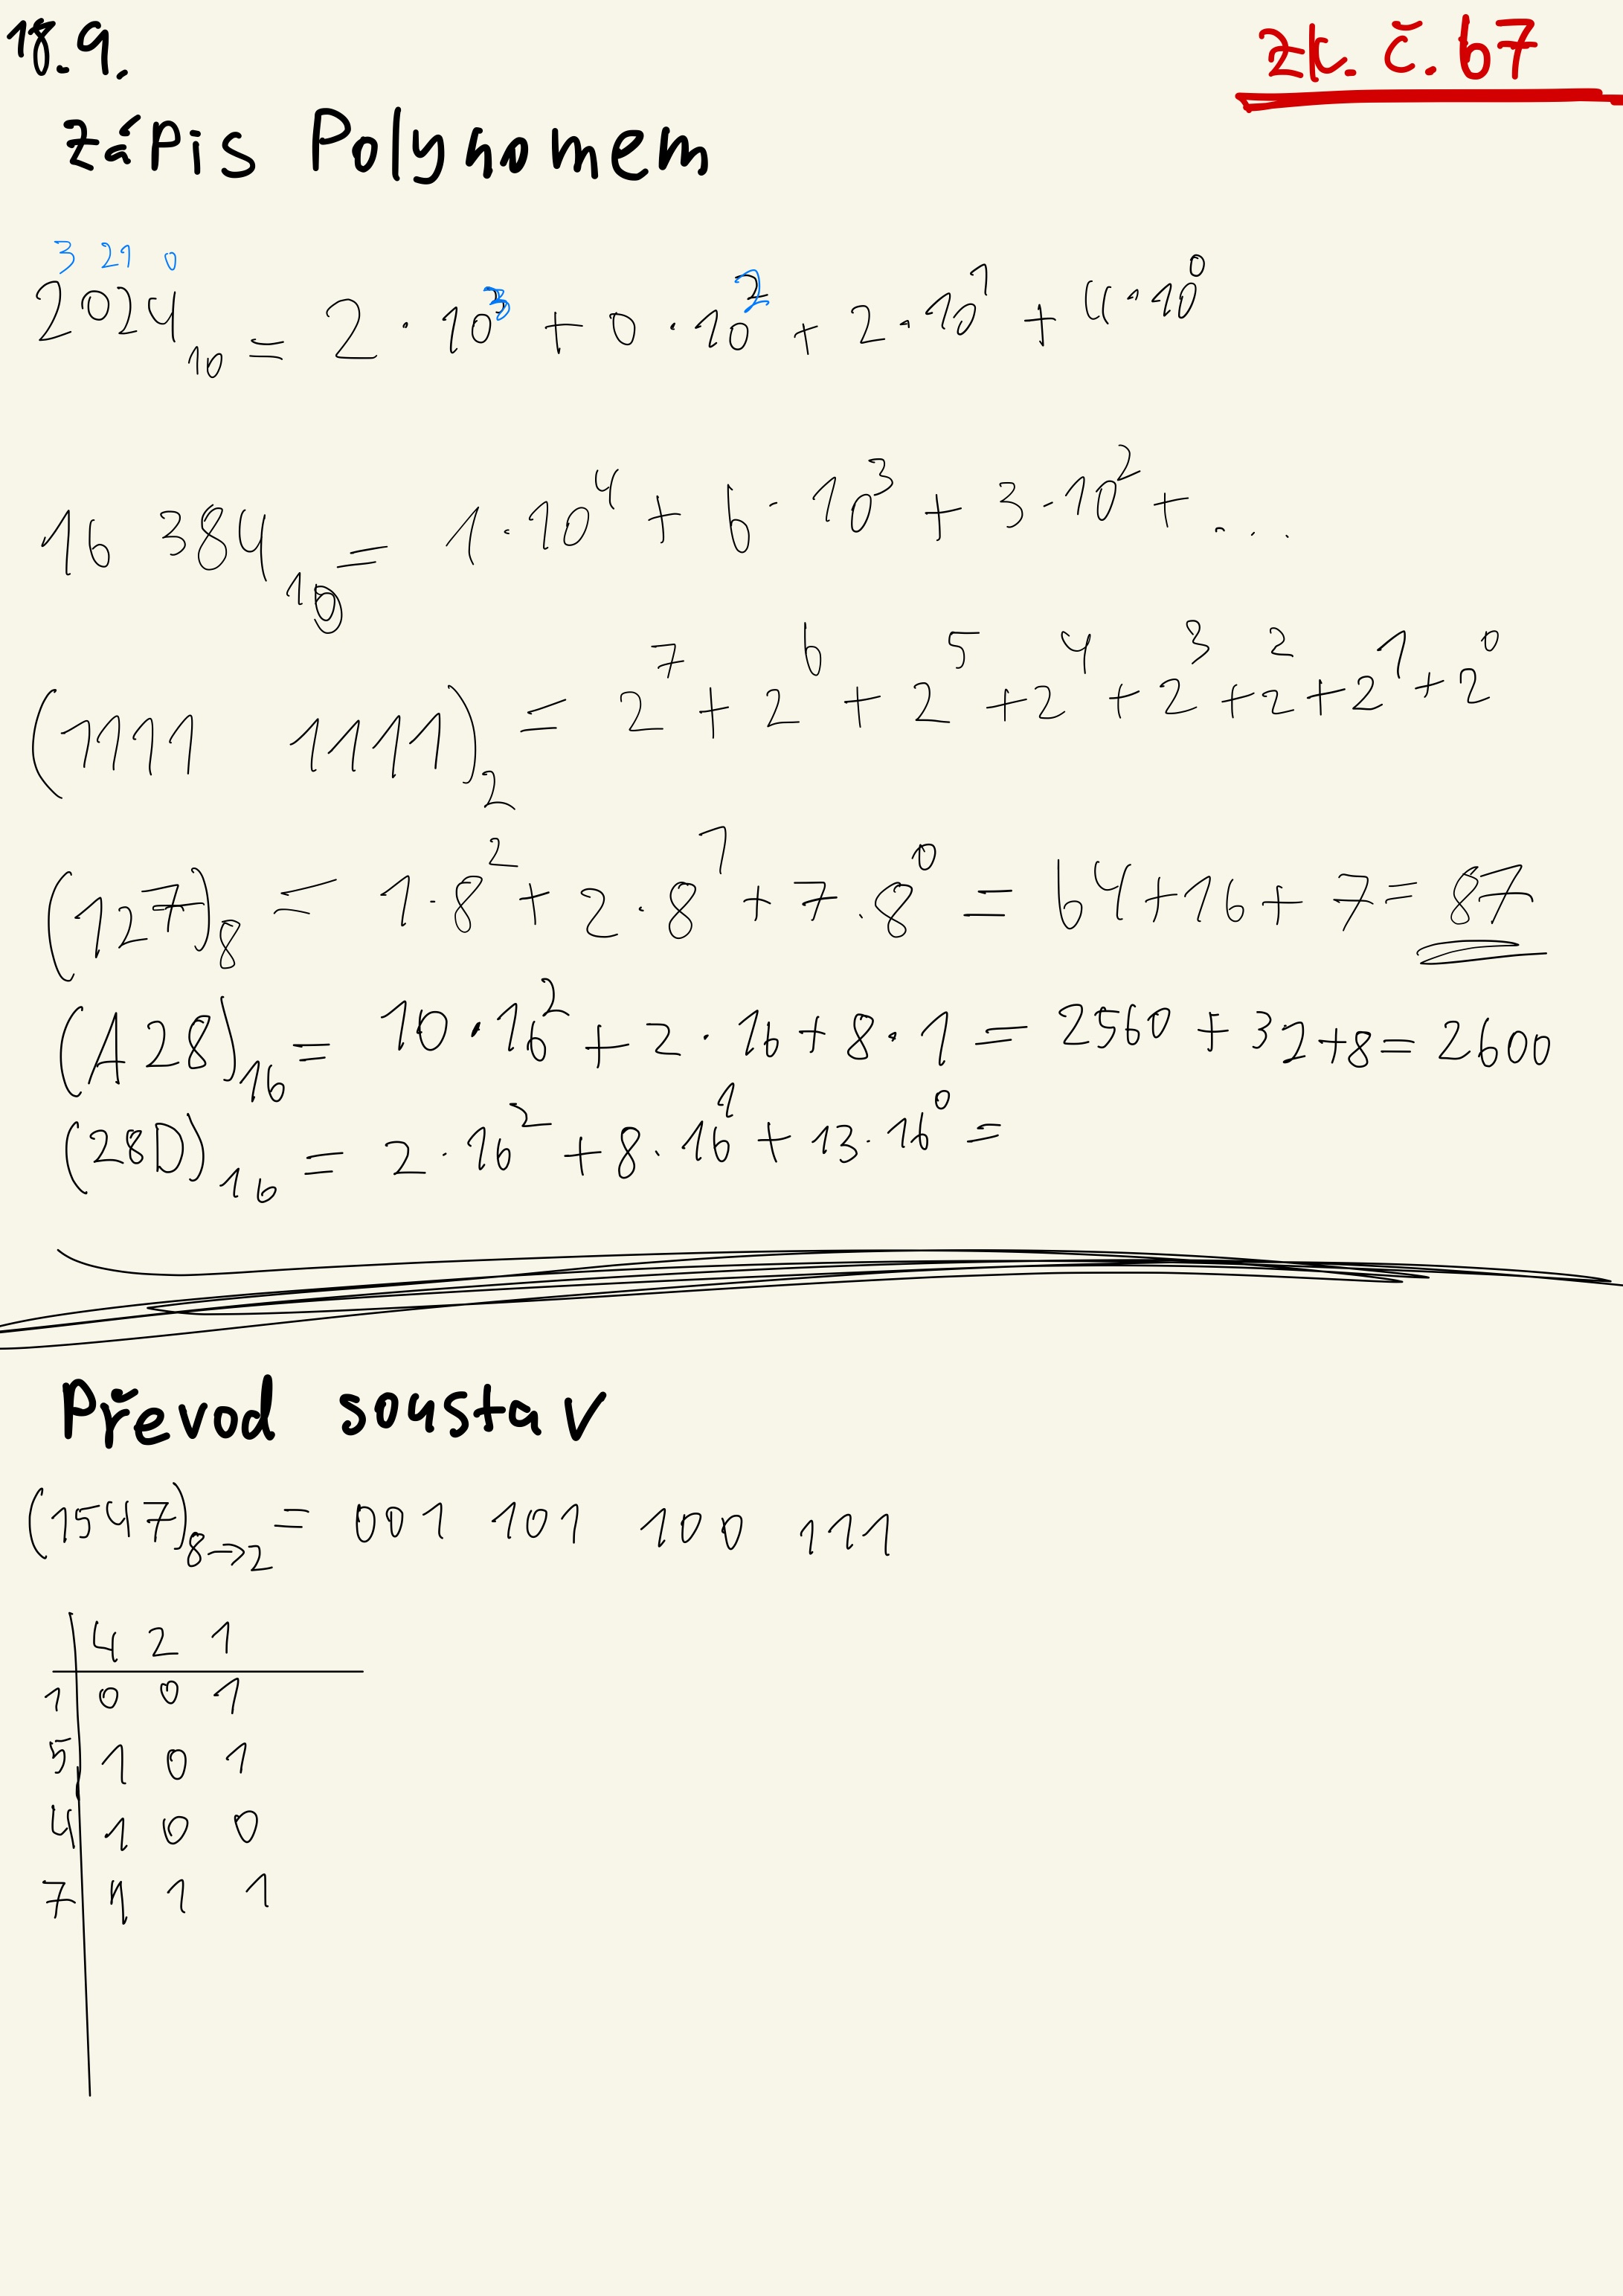 18.9.
zk. č. 67
Zápis Polynomem
3 21 0
2024₁₀ = 2 · 10³ + 0 · 10² + 2 · 10¹ + 4 · 10⁰
16 384₁₀ = 1 · 10⁴ + 6 · 10³ + 3 · 10² + ...
(1111 1111)₂ = 2⁷ + 2⁶ + 2⁵ + 2⁴ + 2³ + 2² + 2¹ + 2⁰
(127)₈ = 1 · 8² + 2 · 8¹ + 7 · 8⁰ = 64 + 16 + 7 = 87
(A28)₁₆ = 10 · 16² + 2 · 16 + 8 · 1 = 2560 + 32 + 8 = 2600
(28D)₁₆ = 2 · 16² + 8 · 16¹ + 13 · 16⁰ =
Převod soustav
(1547)₈→₂ = 001 101 100 111
4 2 1
1 0 0 1
5 1 0 1
4 1 0 0
7 1 1 1